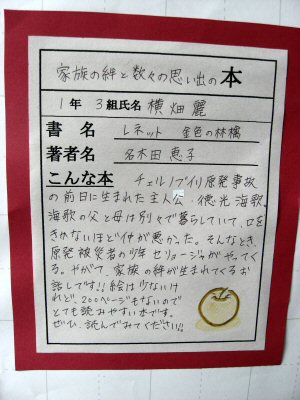 家族の絆と数々の思い出の本
1年 3組氏名 横畑 麗
書名 レネット 金色の林檎
著者名 名木田 恵子
こんな本 チェルノブイリ原発事故
の前日に生まれた主人公、徳光 海歌
海歌の父と母は別々で暮らしていて、口を
きかないほど仲が悪かった。そんなとき、
原発被災者の少年セリョージャがやってく
る。やがて、家族の絆が生まれてくるお
話しです!!絵は少ないけ
れど、200ページもないので
とても読みやすい本です。
ぜひ、読んでみてください!!